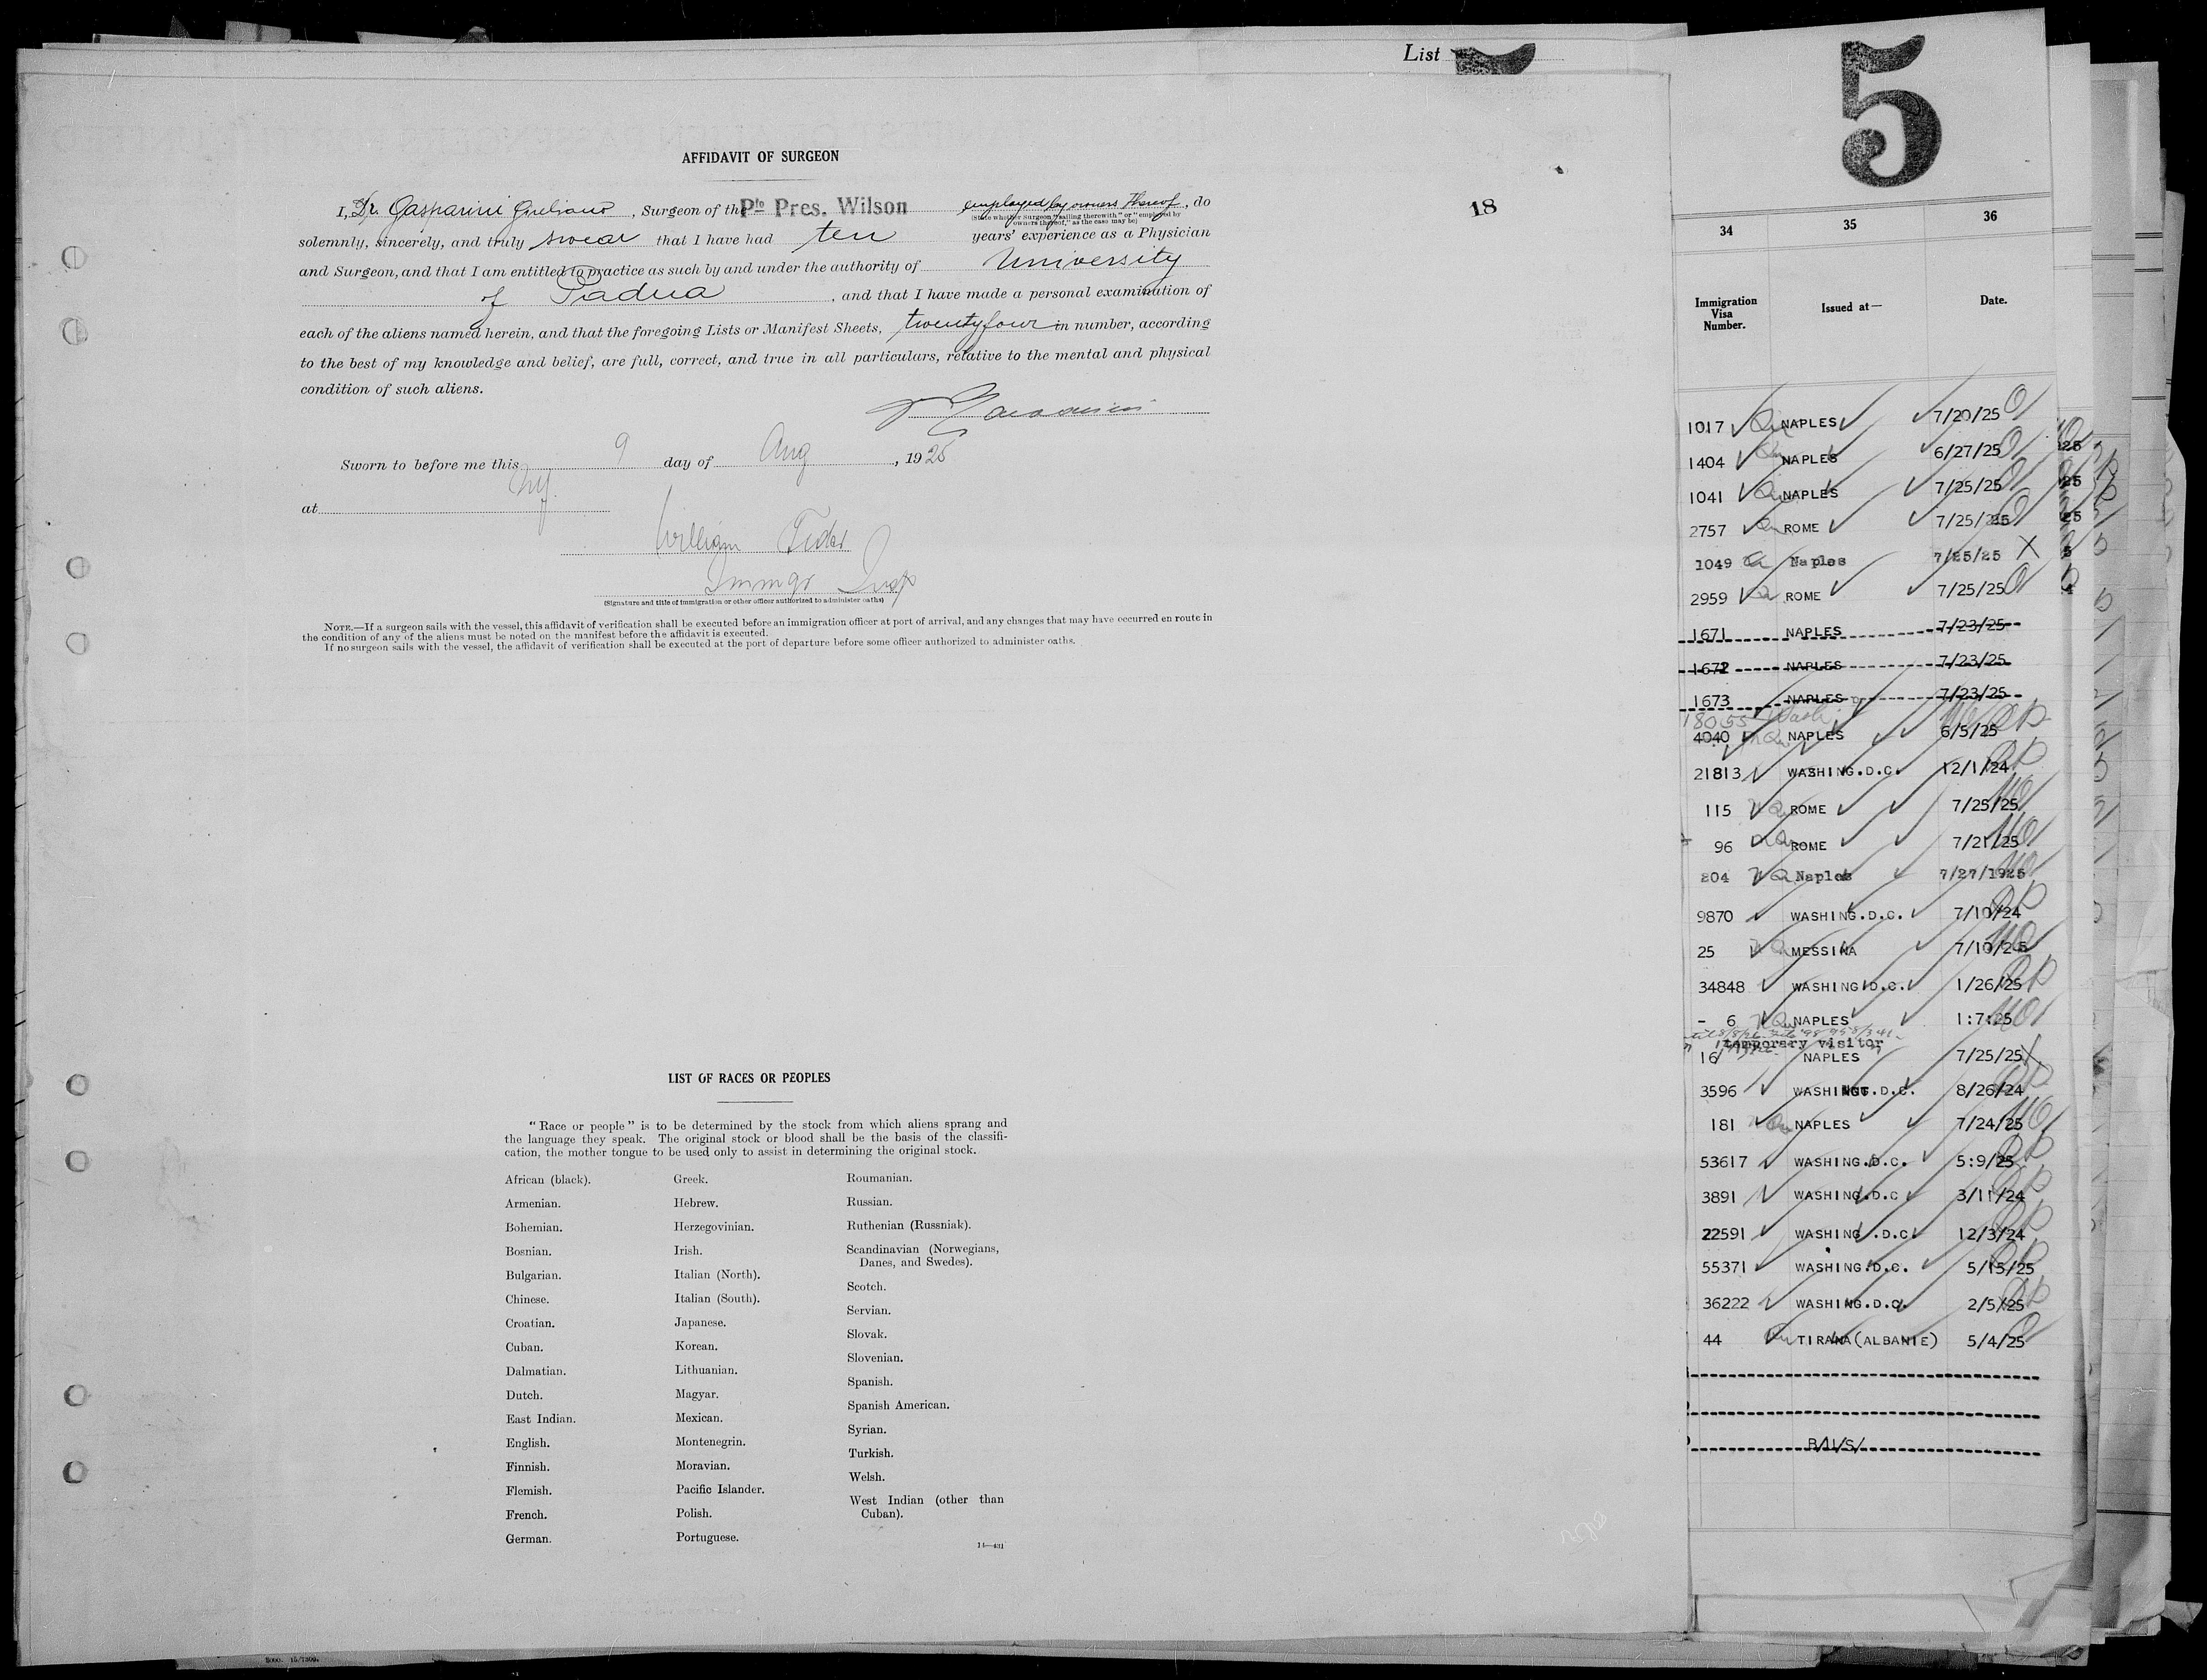 List
5
AFFIDAVIT OF SURGEON
I, Dr. Gasparini Giuliano, Surgeon of the Pfo Pres. Wilson employed by owners thereof, do
(State whether Surgeon "sailing therewith" or "employed by
owners thereof," as the case may be)
solemnly, sincerely, and truly swear that I have had ten years' experience as a Physician
and Surgeon, and that I am entitled to practice as such by and under the authority of University
of Padua, and that I have made a personal examination of
each of the aliens named herein, and that the foregoing Lists or Manifest Sheets, twenty four in number, according
to the best of my knowledge and belief, are full, correct, and true in all particulars, relative to the mental and physical
condition of such aliens.
Sworn to before me this 9 day of Aug, 1925
at NY.
William
Immgr Insp
(Signature and title of immigration or other officer authorized to administer oaths)
NOTE.—If a surgeon sails with the vessel, this affidavit of verification shall be executed before an immigration officer at port of arrival, and any changes that may have occurred en route in
the condition of any of the aliens must be noted on the manifest before the affidavit is executed.
If no surgeon sails with the vessel, the affidavit of verification shall be executed at the port of departure before some officer authorized to administer oaths.
18
LIST OF RACES OR PEOPLES
"Race or people" is to be determined by the stock from which aliens sprang and
the language they speak. The original stock or blood shall be the basis of the classifi-
cation, the mother tongue to be used only to assist in determining the original stock.
African (black).
Armenian.
Bohemian.
Bosnian.
Bulgarian.
Chinese.
Croatian.
Cuban.
Dalmatian.
Dutch.
East Indian.
English.
Finnish.
Flemish.
French.
German.
Greek.
Hebrew.
Herzegovinian.
Irish.
Italian (North).
Italian (South).
Japanese.
Korean.
Lithuanian.
Magyar.
Mexican.
Montenegrin.
Moravian.
Pacific Islander.
Polish.
Portuguese.
Roumanian.
Russian.
Ruthenian (Russniak).
Scandinavian (Norwegians,
Danes, and Swedes).
Scotch.
Servian.
Slovak.
Slovenian.
Spanish.
Spanish American.
Syrian.
Turkish.
Welsh.
West Indian (other than
Cuban).
14—431
34 35 36
Immigration
Visa
Number.
Issued at—
Date.
1017 NAPLES 7/20/25
1404 NAPLES 6/27/25
1041 NAPLES 7/25/25
2757 ROME 7/25/25
1049 Naples 7/25/25
2959 ROME 7/25/25
1671 NAPLES 7/23/25
1672 NAPLES 7/23/25
1673 NAPLES 7/23/25
18055 Wash.
4040 NAPLES 6/5/25
21813 WASHING.D.C. 12/1/24
115 ROME 7/25/25
96 ROME 7/21/25
204 Naples 7/27/1925
9870 WASHING.D.C. 7/10/24
25 MESSINA 7/10/25
34848 WASHING.D.C. 1/26/25
- 6 NAPLES 1:7:25
temporary visitor
16 NAPLES 7/25/25
3596 WASHINGT.D.C. 8/26/24
181 NAPLES 7/24/25
53617 WASHING.D.C. 5:9/25
3891 WASHING.D.C 3/11/24
22591 WASHING.D.C. 12/3/24
55371 WASHING.D.C. 5/15/25
36222 WASHING.D.C. 2/5/25
44 TIRANA(ALBANIE) 5/4/25